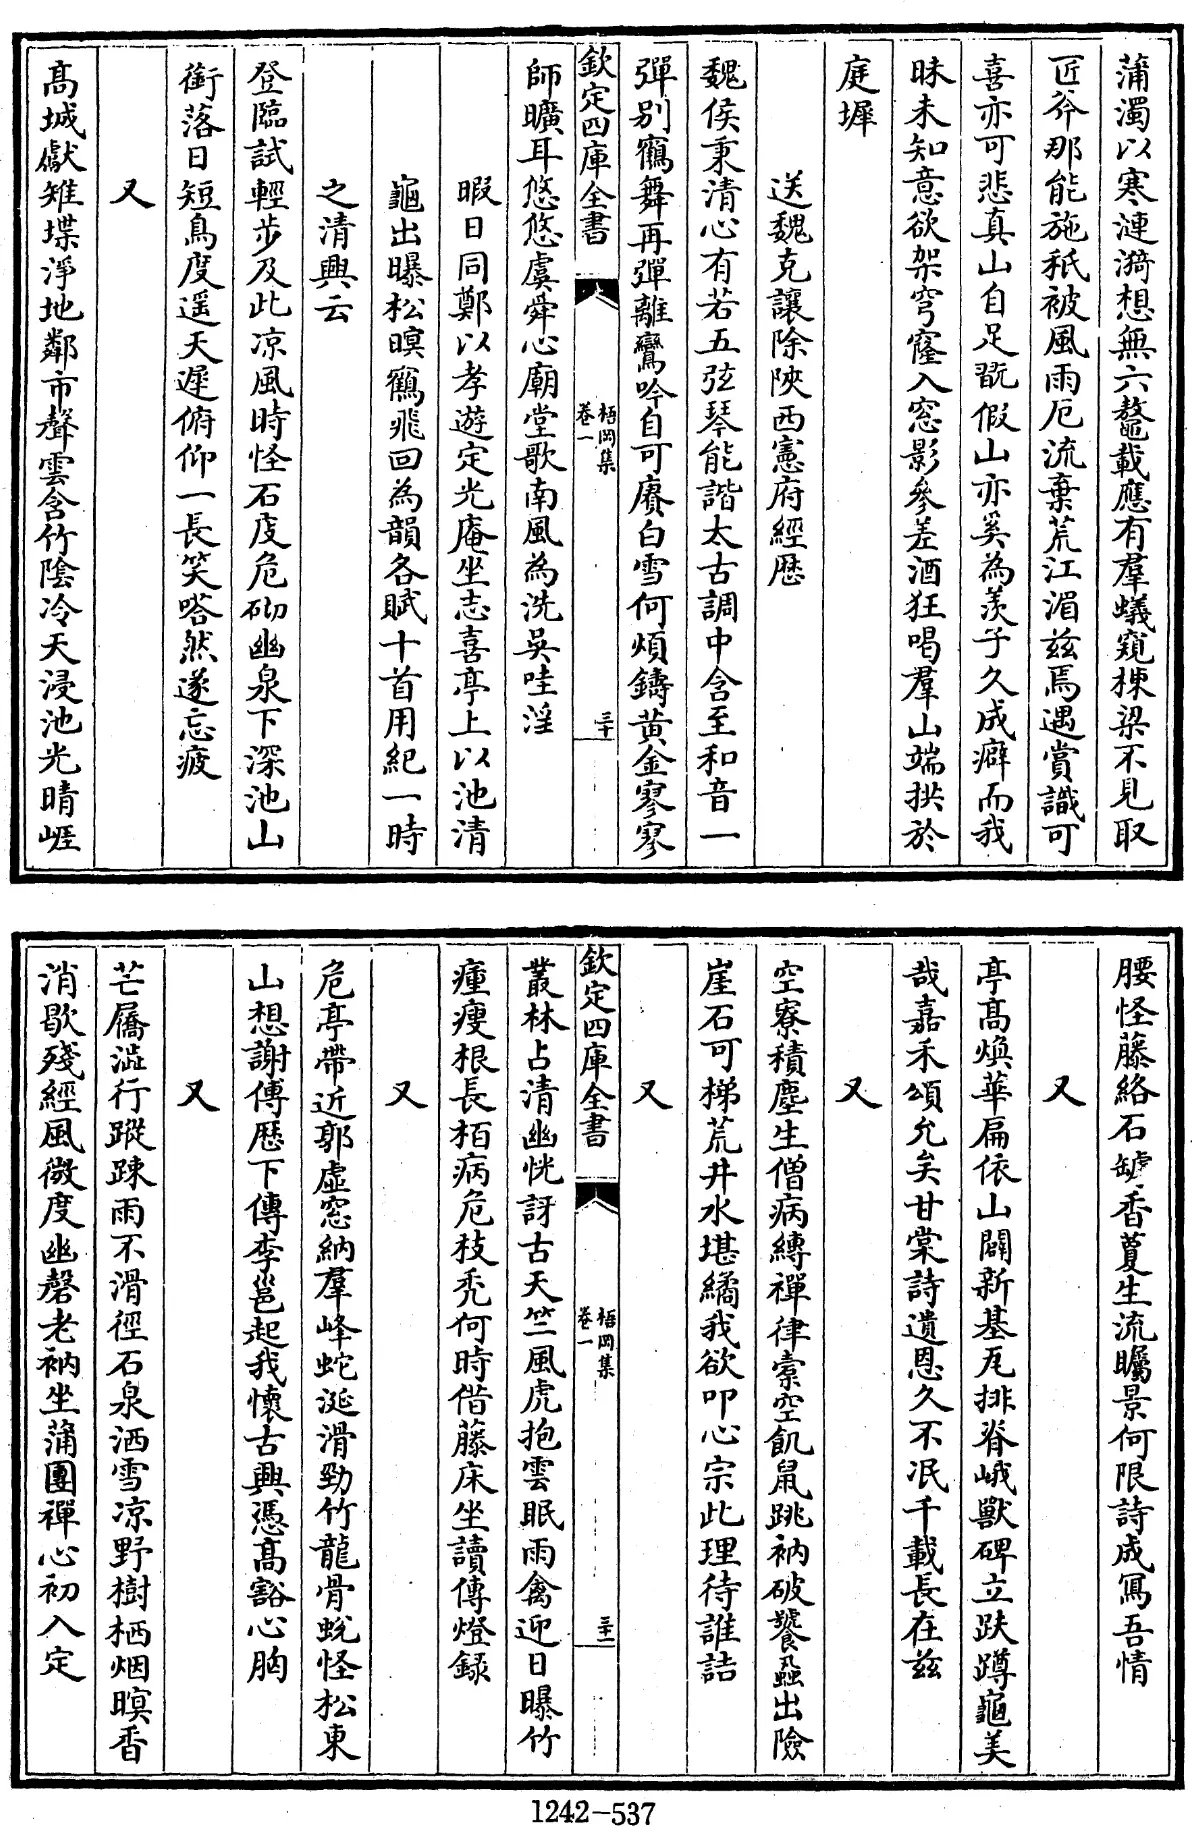 蒲濁以寒漣漪想無六鼇載應有羣蟻窺棟梁不見取
匠斧那能施秪被風雨厄流棄荒江湄兹焉遇賞識可
喜亦可悲真山自足翫假山亦奚為羨子久成癖而我
昧未知意欲架穹窿入窓影參差酒狂喝羣山端拱於
庭墀
送魏克讓除陝西憲府經歷
魏侯秉清心有若五弦琴能諧太古調中含至和音一
彈別鶴舞再彈離鸞吟自可賡白雪何煩鑄黄金寥寥
欽定四庫全書
梧岡集
卷一
三十
師曠耳悠悠虞舜心廟堂歌南風為洗吳哇淫
暇日同鄭以孝遊定光庵坐志喜亭上以池清
龜出曝松暝鶴飛回為韻各賦十首用紀一時
之清興云
登臨試輕步及此凉風時怪石庋危砌幽泉下深池山
銜落日短鳥度遥天遲俯仰一長笑嗒然遂忘疲
又
髙城獻雉堞淨地鄰市聲雲含竹陰冷天浸池光晴崕
腰怪藤絡石罅香蔓生流矚景何限詩成寫吾情
又
亭髙煥華扁依山闢新基凡排脊峨獸碑立趺蹲龜美
哉嘉禾頌允矣甘棠詩遺恩久不泯千載長在兹
又
空寮積塵生僧病縛禪律槖空飢鼠跳衲破饕蝨出險
崖石可梯荒井水堪繘我欲叩心宗此理待誰詰
又
欽定四庫全書
梧岡集
卷一
三十一
叢林占清幽恍訝古天竺風虎抱雲眠雨禽迎日曝竹
瘇瘦根長栢病危枝秃何時借藤床坐讀傳燈録
又
危亭帶近郭虚窓納羣峰蛇涎滑勁竹龍骨蛻怪松東
山想謝傅歴下傳李邕起我懷古興憑髙豁心胸
又
芒屩澁行蹤踈雨不滑徑石泉洒雪凉野樹栖烟暝香
消歇殘經風微度幽磬老衲坐蒲團禪心初入定
1242-537